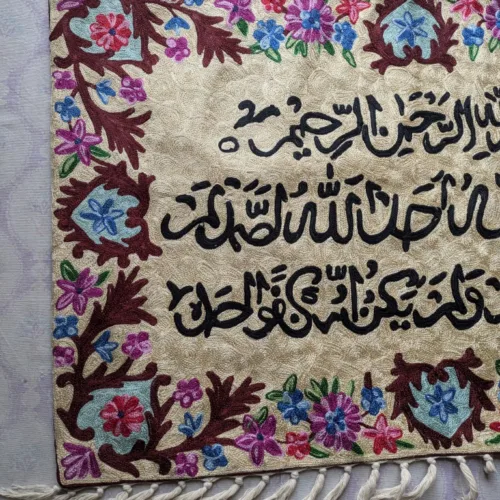 الرَّحْمَنِ الرَّحِيمِ
احَد اللّٰهُ الصَّمَد لَمْ
وَلَمْ يَكُنْ لَّهُ كُفُوًا احَد